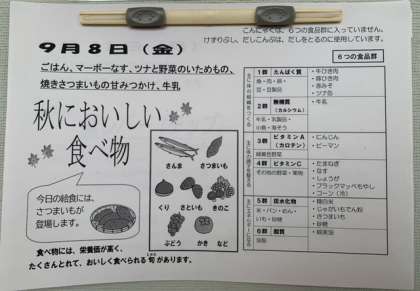 こんにゃくは、６つの食品群に入っていません。
けずりぶし、だしこんぶは、だしをとるのに使用しています。
９月８日（金）
６つの食品群
ごはん、マーボーなす、ツナと野菜のいためもの、
焼きさつまいもの甘みつかけ、牛乳
秋においしい
食べ物
さんま
さつまいも
くり
さといも
きのこ
ぶどう
かき
など
今日の給食には、
さつまいもが
登場します。
食べ物には、栄養価が高く、
たくさんとれて、おいしく食べられる旬があります。
１群 たんぱく質
魚・肉・卵・
豆・豆製品
・牛ひき肉
・豚ひき肉
・赤みそ
・ツナ缶
２群 無機質
（カルシウム）
牛乳・乳製品・
小魚・海そう
・牛乳
３群 ビタミンＡ
（カロテン）
緑黄色野菜
・にんじん
・ピーマン
４群 ビタミンＣ
その他の野菜・果物
・たまねぎ
・なす
・しょうが
・ブラックマッペもやし
・コーン（缶）
５群 炭水化物
米・パン・めん・
いも・砂糖
・精白米
・じゃがいもでん粉
・さつまいも
・砂糖
６群 脂質
油脂